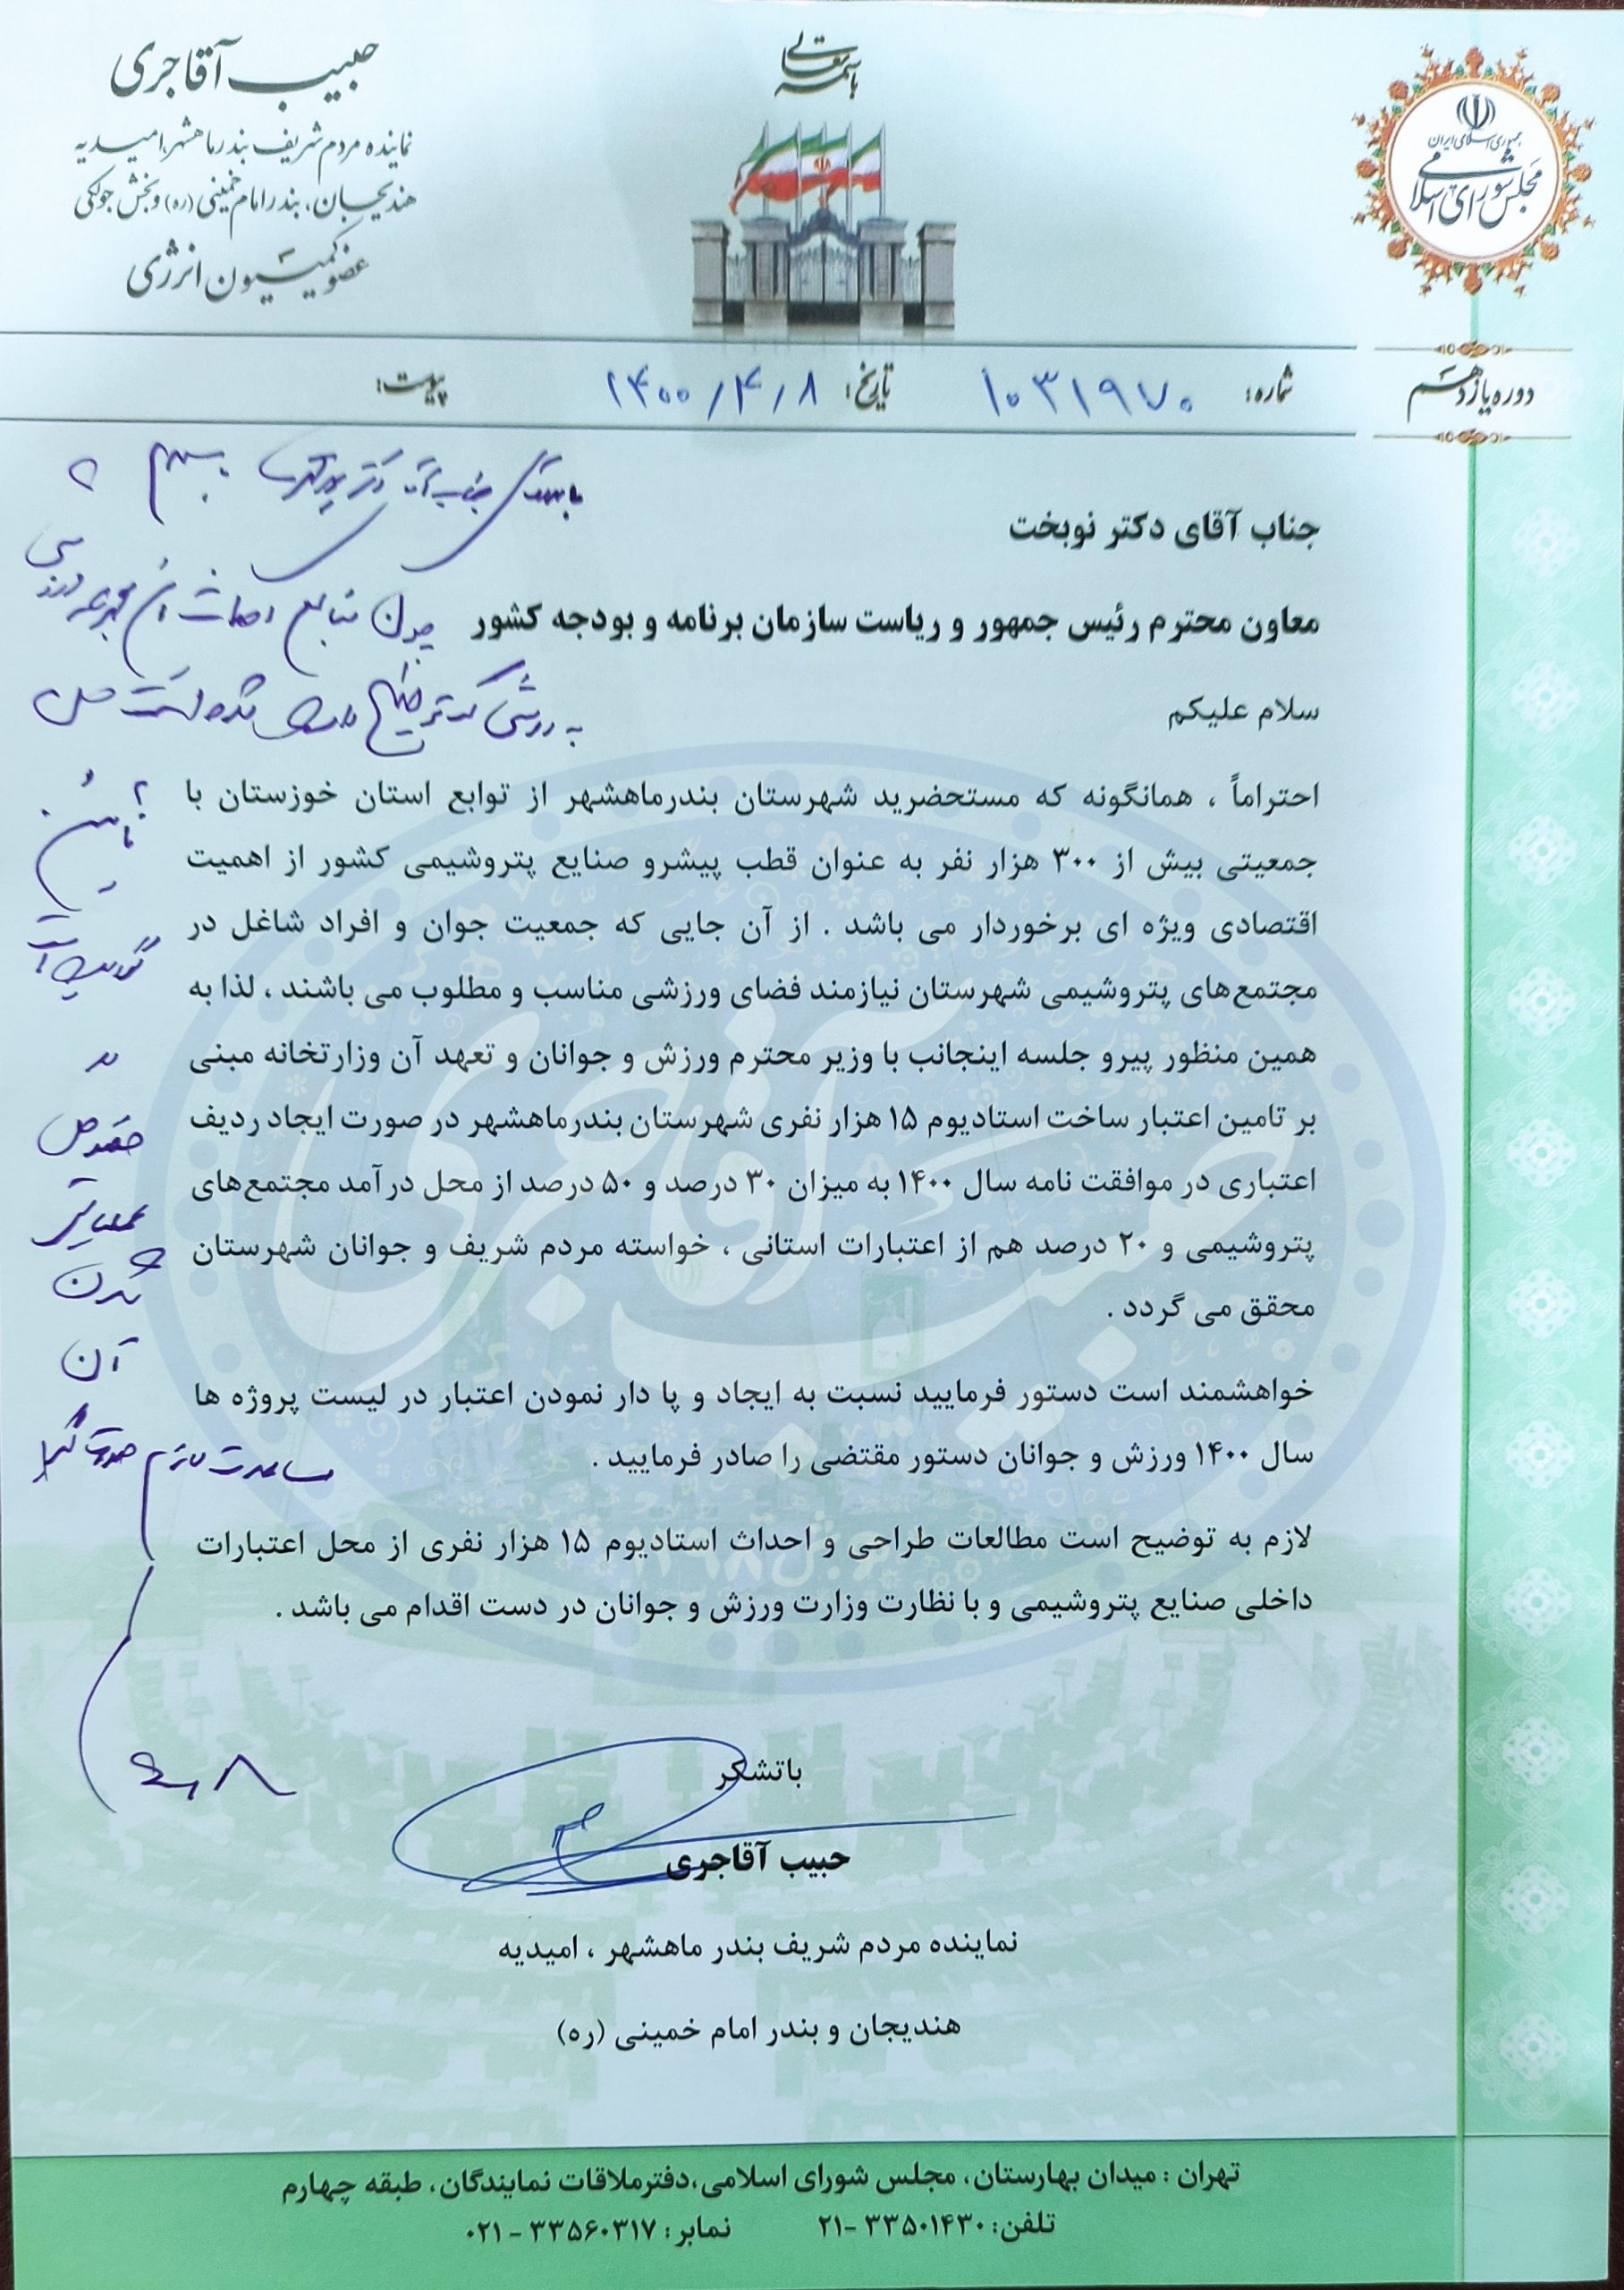 باسمه تعالی
جمهوری اسلامی ایران
مجلس شورای اسلامی
حبیب آقاجری
نماینده مردم شریف بندر ماهشهر، امیدیه
هندیجان، بندر امام خمینی (ره) و بخش جولکی
عضو کمیسیون انرژی
دوره یازدهم
شماره: ۱۰۳۱۹۷۰
تاریخ: ۱۴۰۰/۴/۸
پیوست:
جناب آقای دکتر نوبخت
معاون محترم رئیس جمهور و ریاست سازمان برنامه و بودجه کشور
سلام علیکم
احتراماً ، همانگونه که مستحضرید شهرستان بندرماهشهر از توابع استان خوزستان با
جمعیتی بیش از ۳۰۰ هزار نفر به عنوان قطب پیشرو صنایع پتروشیمی کشور از اهمیت
اقتصادی ویژه ای برخوردار می باشد . از آن جایی که جمعیت جوان و افراد شاغل در
مجتمع‌های پتروشیمی شهرستان نیازمند فضای ورزشی مناسب و مطلوب می باشند ، لذا به
همین منظور پیرو جلسه اینجانب با وزیر محترم ورزش و جوانان و تعهد آن وزارتخانه مبنی
بر تامین اعتبار ساخت استادیوم ۱۵ هزار نفری شهرستان بندرماهشهر در صورت ایجاد ردیف
اعتباری در موافقت نامه سال ۱۴۰۰ به میزان ۳۰ درصد و ۵۰ درصد از محل درآمد مجتمع‌های
پتروشیمی و ۲۰ درصد هم از اعتبارات استانی ، خواسته مردم شریف و جوانان شهرستان
محقق می گردد .
خواهشمند است دستور فرمایید نسبت به ایجاد و پا دار نمودن اعتبار در لیست پروژه ها
سال ۱۴۰۰ ورزش و جوانان دستور مقتضی را صادر فرمایید .
لازم به توضیح است مطالعات طراحی و احداث استادیوم ۱۵ هزار نفری از محل اعتبارات
داخلی صنایع پتروشیمی و با نظارت وزارت ورزش و جوانان در دست اقدام می باشد .
باتشکر
حبیب آقاجری
نماینده مردم شریف بندر ماهشهر ، امیدیه
هندیجان و بندر امام خمینی (ره)
چون منابع
به روشی که توضیح داده شده است
عملیاتی
شدن
آن
مساعدت لازم صورت گیرد
تهران : میدان بهارستان، مجلس شورای اسلامی،دفترملاقات نمایندگان، طبقه چهارم
تلفن: ۳۳۵۰۱۴۳۰ -۲۱
نمابر: ۳۳۵۶۰۳۱۷ - ۰۲۱